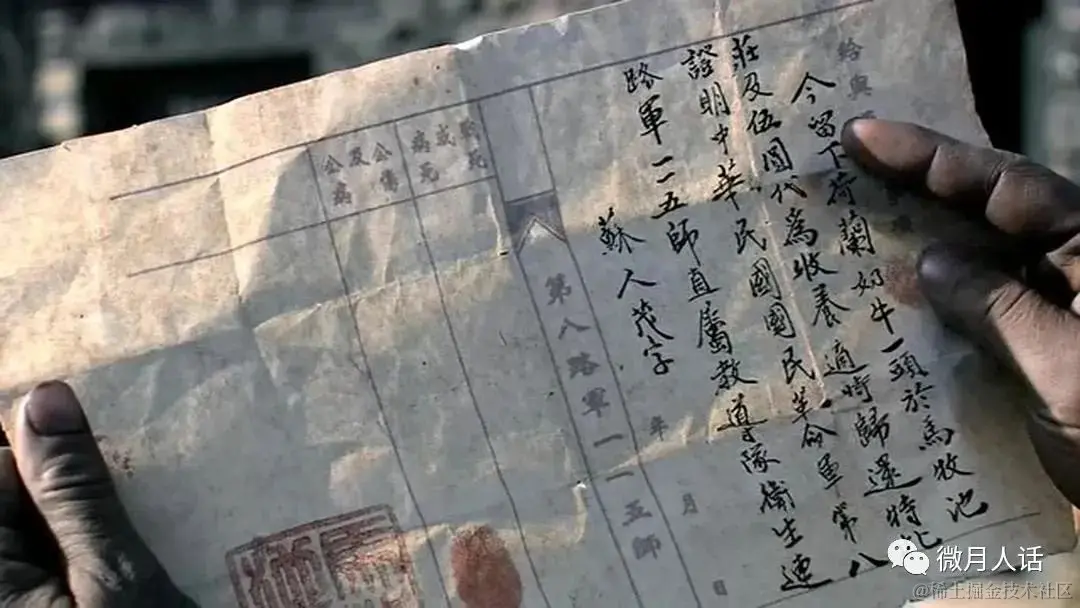 給與
今留下荷蘭奶牛一頭於馬牧池
莊及伍圓代為收養適時歸還特此
證明中華民國國民革命軍第八
路軍一一五師直屬教導隊衛生連
蘇人茂字
年月日
第八路軍一一五師
死或病死
公傷及公病
微月人话
@稀土掘金技术社区